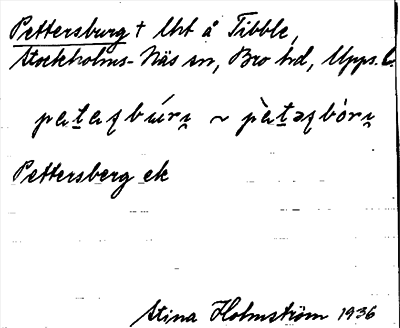 Pettersburg † Lht å Tibble,
Stockholms-Näs sn, Bro hd, Upps. l.
pataʃbúrꞔ ~ pàtəʃbórꞔ
Pettersberg ek
Stina Holmström 1936